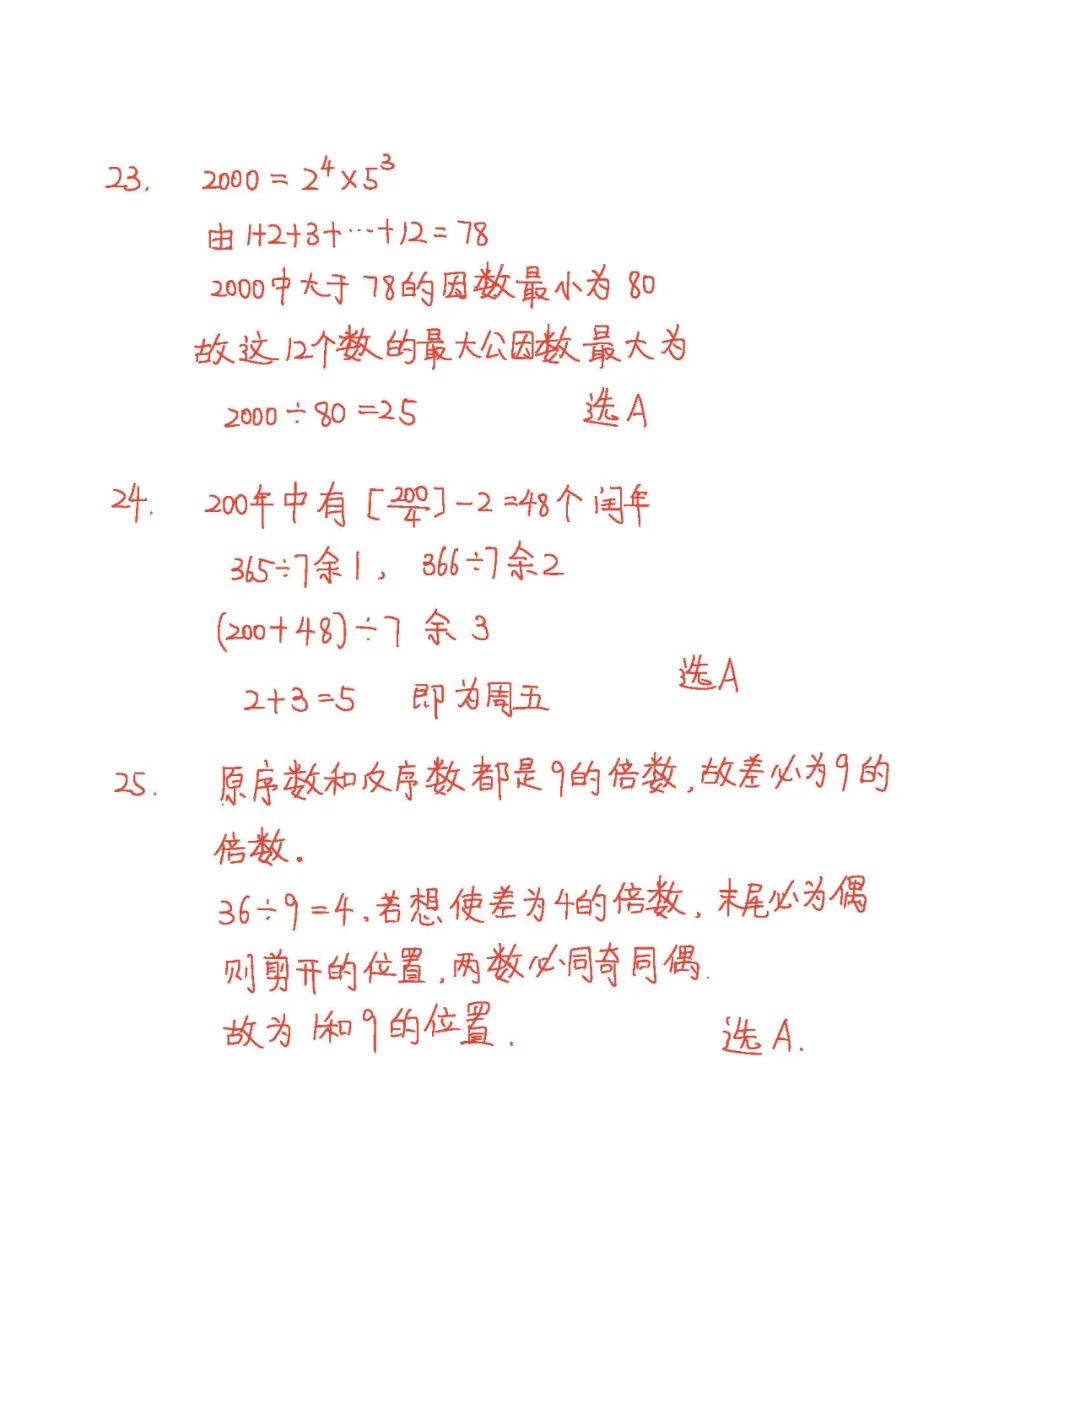 23. 2000 = 2⁴×5³
由 1+2+3+…+12 = 78
2000中大于78的因数最小为80
故这12个数的最大公因数最大为
2000÷80=25 选A
24. 200年中有[200/4]-2=48个闰年
365÷7余1, 366÷7余2
(200+48)÷7 余 3
2+3=5 即为周五 选A
25. 原序数和反序数都是9的倍数,故差必为9的
倍数.
36÷9=4.若想使差为4的倍数,末尾必为偶
则剪开的位置,两数必同奇同偶.
故为1和9的位置. 选A.